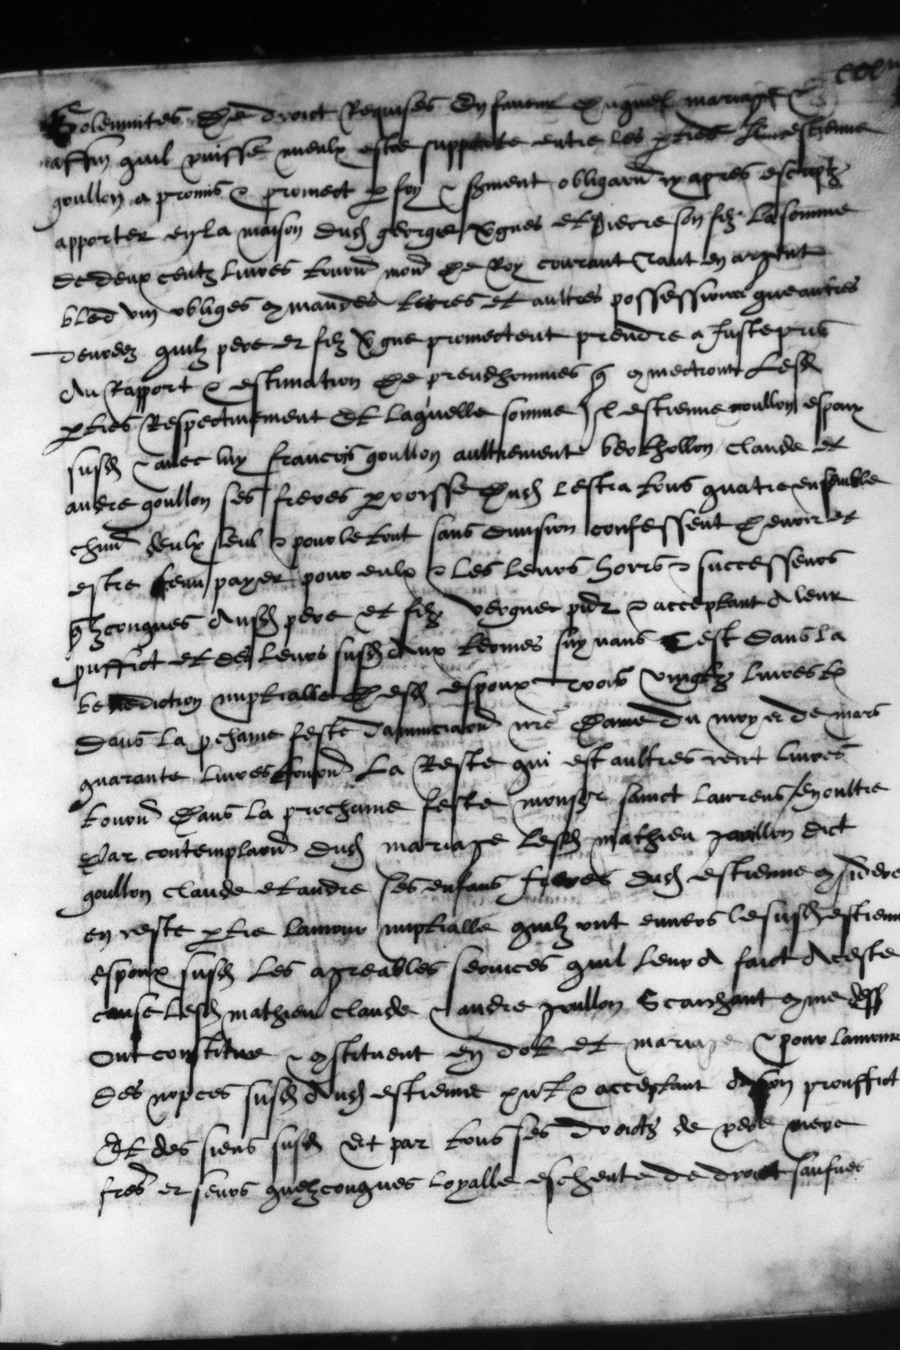 Solemnites de droict requises en faveur duquel mariage &
affin quil puisse mieulx estre supporte entre les parties led estienne
goullon a promis & promect par foy & serment obligaon cy apres escriptz
apporter en la maison dud george Vgues et pierre son filz la somme
de deux centz livres tournois mon de Roy courant tant en argent
bled vin obliges commandes terres et aultres possessions que aultres
denrees quilz pere et filz Vgue promectent prendre a juste pris
Au rapport & estimation de preudhommes q commectront lesd
parties respectivement Et laquelle somme led estienne goullon espoux
susd & avec luy francoys goullon aultrement berthollon claude et
andre goullon ses freres parroisse dud lestra tous quatre ensemble
chun deulx seul & pour le tout sans division confessent devoir et
estre tenu payer pour eulx & les leurs hoirs & successeurs
qlzconques Ausd pere et filz vergues pnt & acceptant A leur
puffict et des leurs susd Aux termes suyvans C est dans la
benediction nuptialle desd espoux trois vingtz livres t
Dans la pchaine feste dannunciaon nre dame du moys de mars
quarante livres tournois La Reste qui est aultres cent livres
tournois Dans la prochaine feste monsgr sainct laurens en oultre
Par contemplaon dud mariage lesd mathieu goullon dict
goullon claude et andre ses enfans freres dud estienne
en reste partie lamour nuptialle quilz ont envers le susd estienne
espoux susd les agreables services quil leur A faict A ceste
cause lesd mathieu claude & andre goullon Scaichant comme dess
Ont constitue & constituent en dot et mariage & pour lamour
des nopces susd Aud estienne pnt & acceptant A son prouffict
Et des siens susd Et par tous ses droictz de pere mere
freres et seurs quelzconques loyalle escheute de droict saufves